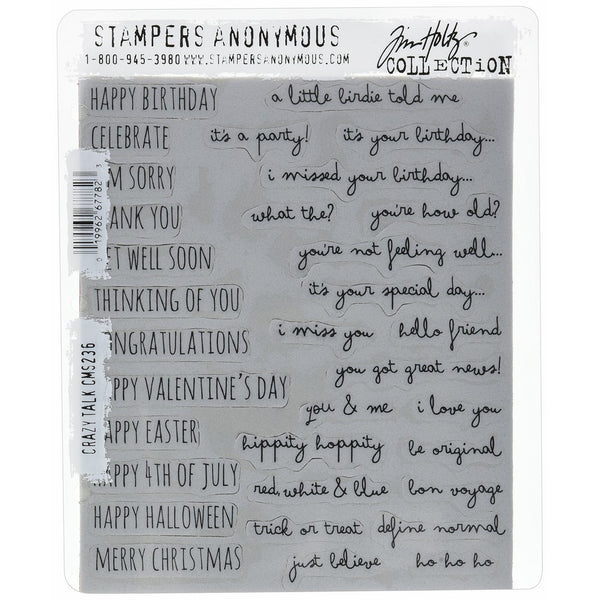 STAMPERS ANONYMOUS
1-800-945-3980 WWW.STAMPERSANONYMOUS.COM
Tim Holtz
COLLECTION
HAPPY BIRTHDAY a little birdie told me
CELEBRATE it's a party! it's your birthday...
M SORRY i missed your birthday...
ANK YOU what the? you're how old?
T WELL SOON you're not feeling well...
THINKING OF YOU it's your special day...
i miss you hello friend
NGRATULATIONS
you got great news!
PPY VALENTINE'S DAY
you & me i love you
APPY EASTER
hippity hoppity be original
HAPPY 4TH OF JULY
red, white & blue bon voyage
HAPPY HALLOWEEN
trick or treat define normal
MERRY CHRISTMAS just believe ho ho ho
0 19962 67782 3
CRAZY TALK CMS236